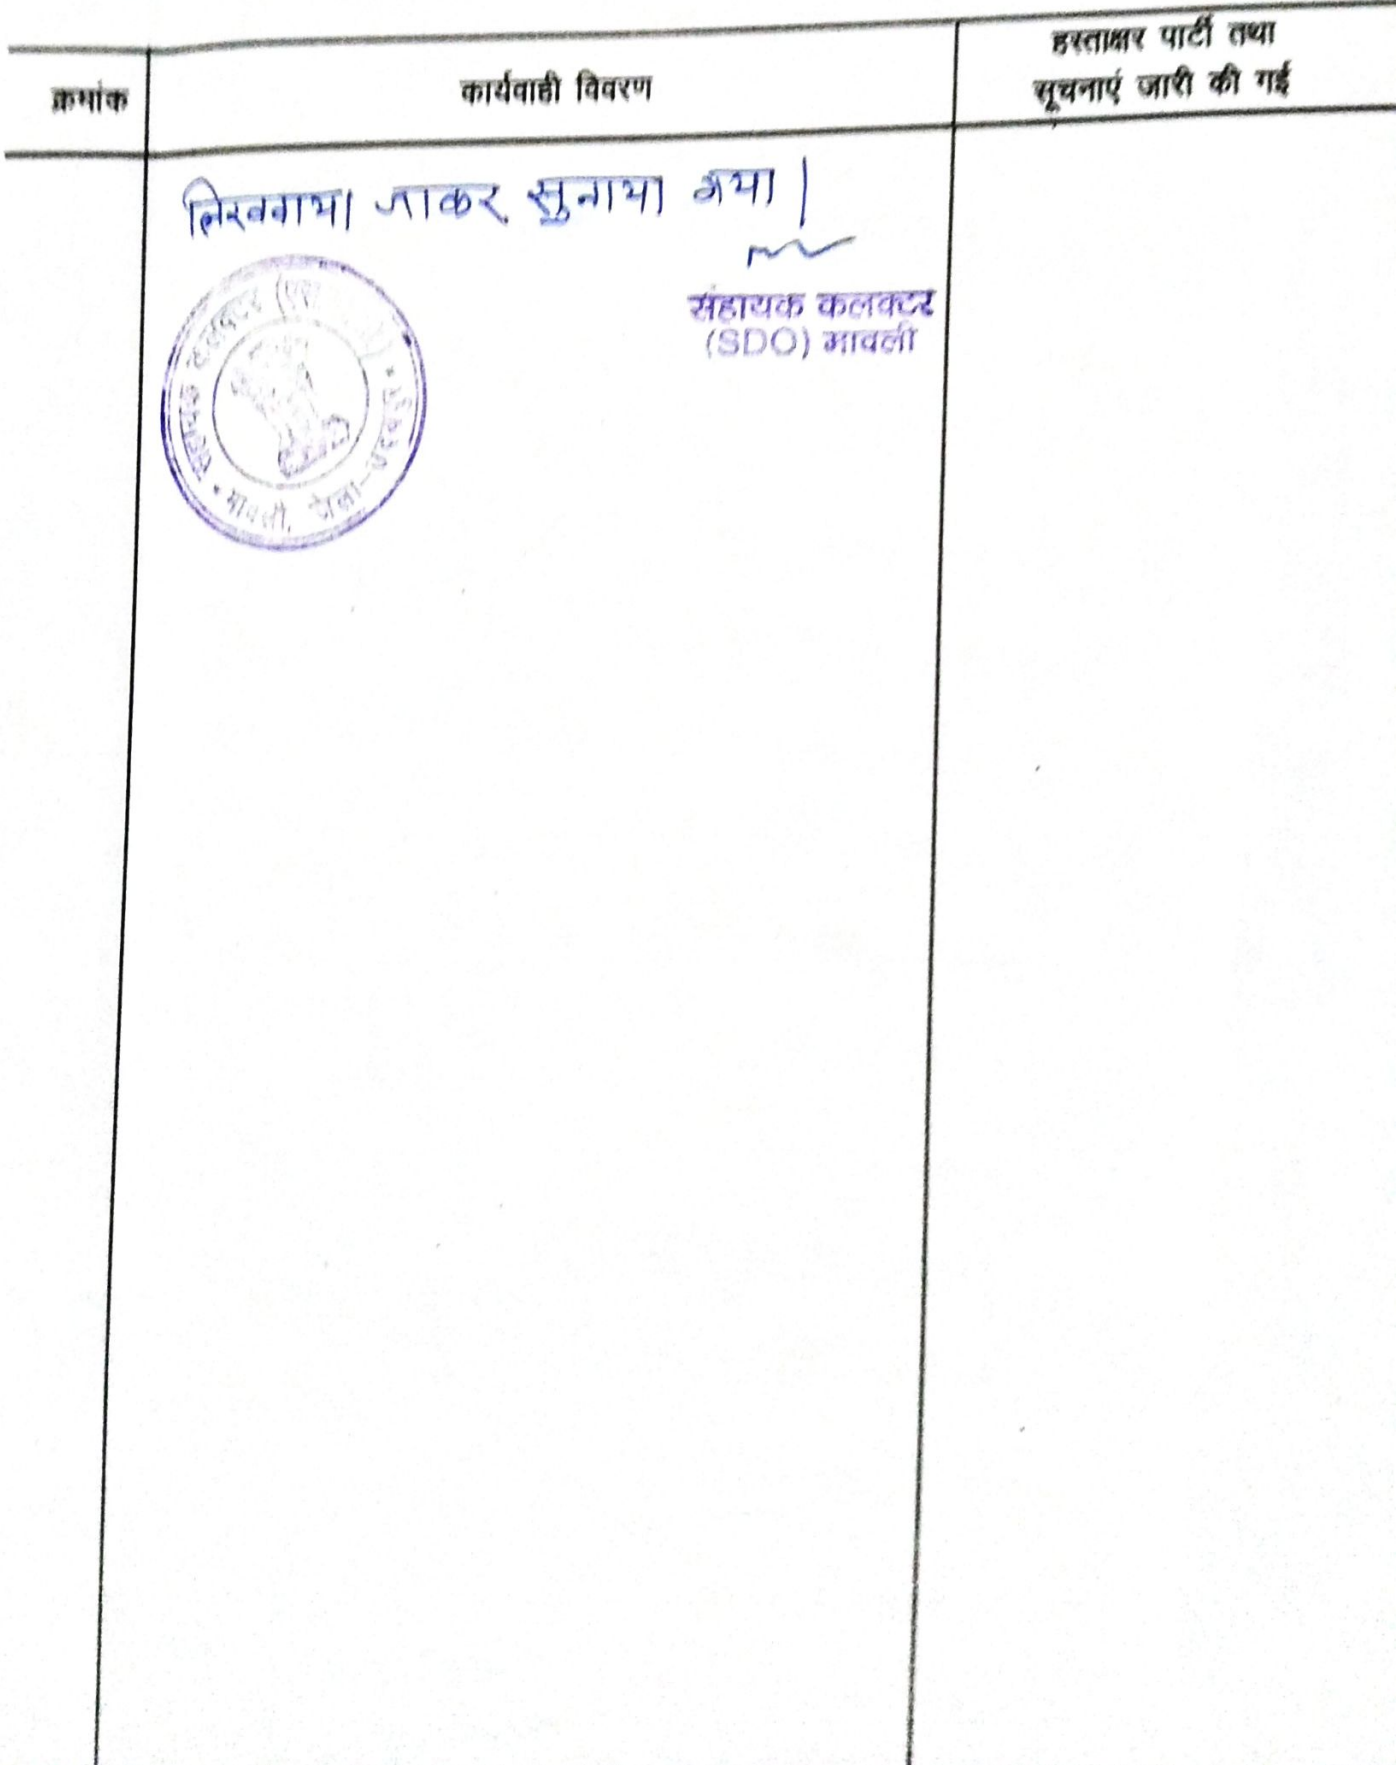 क्रमांक
कार्यवाही विवरण
हस्ताक्षर पार्टी तथा
सूचनाएं जारी की गई
लिखवाया जाकर सुनाया गया।
सहायक कलक्टर
(SDO) मावली
सहायक कलक्टर
मावली, जिला-